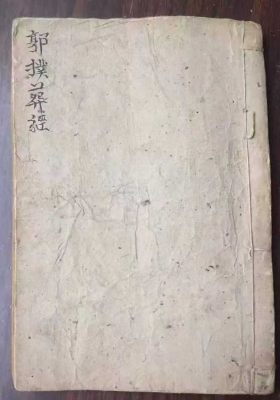 郭撲葬經